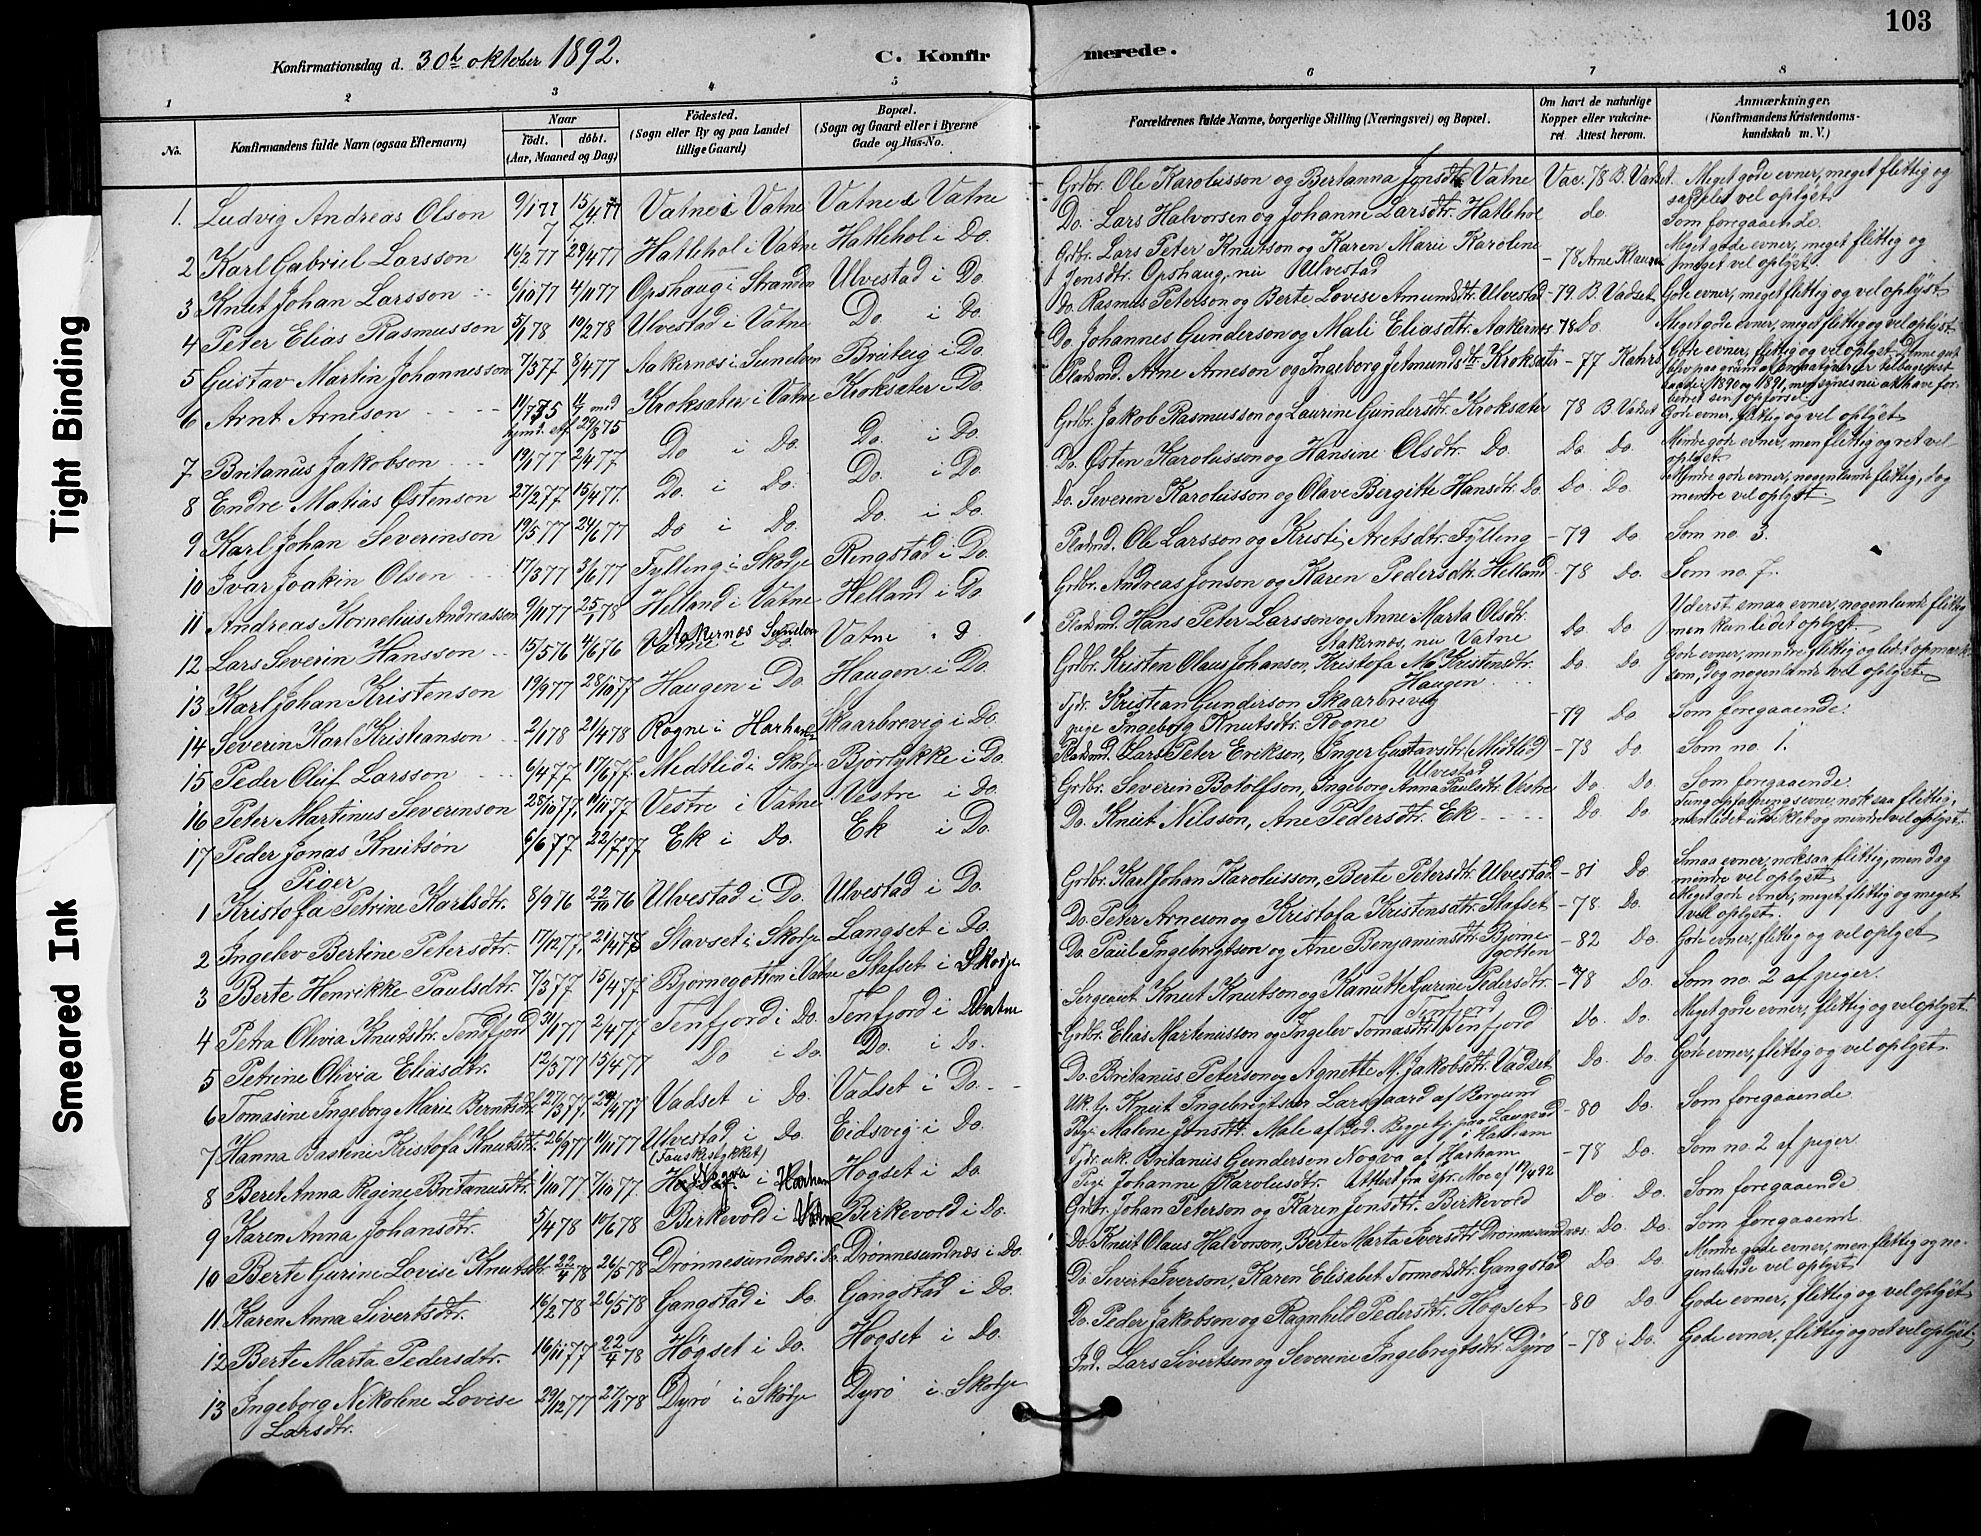 103
Konfirmationsdag d. 30te oktober 1892.
C. Konfirmerede.
1 2 3 4 5 6 7 8
No.
Konfirmandens fulde Navn (ogsaa Efternavn)
Naar
födt. döbt.
(Aar, Maaned og Dag)
Födested.
(Sogn eller By og paa Landet
tillige Gaard)
Bopæl.
(Sogn og Gaard eller i Byerne
Gade og Hus-No.
Forældrenes fulde Navne, borgerlige Stilling (Næringsvei) og Bopæl.
Om havt de naturlige
Kopper eller vakcine-
ret. Attest herom.
Anmærkninger.
(Konfirmandens Kristendoms-
kundskab m. V.)
1. Ludvig Andreas Olson 9/1 77 15/4 77 Vatne i Vatne Vatne i Vatne Grdbr. Ole Karolusson og Bertanna Jonsdtr. Vatne Vac. 78 B. Vadset. Meget gode evner, meget flittig og
vel oplyst.
2 Karl Gabriel Larsson 16/2 77 29/4 77 Hatlehol i Vatne Hatlehol i Do. Do. Lars Halvorsen og Johanne Larsdtr. Hatlehol do. Som foregaaende.
3 Knut Johan Larsson 6/10 77 4/11 77 Opshaug i Stranden Ulvestad i Do. Grdbr. Lars Peter Knutson og Karen Marie Karoline
Jensdtr. Opshaug, nu Ulvestad - 78 Arne Klausen Meget gode evner, meget flittig og
meget vel oplyst.
4 Peter Elias Rasmusson 5/1 78 10/2 78 Ulvestad i Vatne Do. i Do. Do. Rasmus Peterson og Berte Lovise Amundsdtr. Ulvestad - 79 B. Vadset Gode evner, meget flittig og vel oplyst
5 Gustav Martin Johannesson 7/3 77 8/4 77 Aakernæs i Sundem Breiteig i Do. Do. Johannes Gunderson og Mali Eliasdtr. Aakernæs 78 Do. Meget gode evner, meget flittig og vel oplyst.
6 Arnt Arneson 11/7 75 29/8 75 Kroksæter i Vatne Kroksæter i Do. Pladsmd. Arne Arneson og Ingeborg Jetmundsdtr. Kroksæter - 77 Gode evner, flittig og vel oplyst. Denne gut
blev paa grund af tilbagesat
baade i 1890 og 1891, men synes nu at have for-
bedret sin opførsel
7 Britanus Jakobson 19/1 77 2/4 77 Do i Do. Do. i Do. Grdbr. Jakob Rasmusson og Laurine Gundersdtr. Kroksæter 78 B. Vadset Gode evner, flittig og vel oplyst
8 Endre Matias Østenson 27/2 77 15/4 77. Do. i Do. Do. i Do. Do. Østen Karolusson og Hansine Olsdtr. Do. Do. Do. Mindre gode evner, men flittig og ret vel
oplyst.
9 Karl Johan Severinson 19/5 77 24/6 77 Do i Do. Do. i Do. Do. Severin Karolusson og Olave Birgitte Hansdtr. Do. Do. Do. Mindre gode evner, nogenlunde flittig, dog
mindre vel oplyst.
10 Ivar Joakin Olson 17/3 77 3/6 77 Fylling i Skodje Ringstad i Do. Pladsmd. Ole Larsson og Kristi Aretsdtr. Fylling - 79 Do. Som no. 3.
11 Andreas Kornelius Andreasson 9/11 77 25/1 78 Helland i Vatne Helland i Do Grdbr. Andreas Jonson og Karen Pedersdtr. Helland - 78 Do. Som no. 7.
12 Lars Severin Hansson 15/5 76 4/6 76 Vatne i Do. Aakernæs Sundem Vatne Pladsmd. Hans Peter Larsson og Anne Marta Olsdtr.
Aakernæs, nu Vatne Do. Do. Yderst smaa evner, nogenlunde flittig
men kun lidet oplyst.
13 Karl Johan Kristenson 19/9 77 28/10 77 Haugen i Do. Haugen i Do. Grdbr. Kristen Olaus Johanson, Kristofa Ma. Kristensdtr.
Haugen Do. Do. Gode evner, mindre flittig og lidet opmærk-
som, dog nogenlunde vel oplyst.
14 Severin Karl Kristianson 2/1 78 21/4 78 Rogne i Harham Skaarbrevig i Do. Tjdr. Kristian Gunderson Skaarbrevig
pige Ingeborg Knutsdtr. Rogne - 79 Do. Som foregaaende.
15 Peder Oluf Larsson 6/4 77. 17/6 77. Medslid i Skodje Bjørlykke i Do. Pladsmd. Lars Peter Erikson, Inger Gustavsdtr. (Midtlid)
Ulvestad - 78 Do. Som no. 1.
16 Peter Martinus Severinson 28/10 77. 11/11 77 Vestre i Vatne Vestre i Do. Grdbr. Severin Botolfson, Ingeborg Anna Paulsdtr. Vestre Do. Do. Som foregaaende
17 Peder Jonas Knutson 6/6 77 22/7 77 Ek i Do. Ek i Do. Do. Knut Nilsson, Ane Pedersdtr. Ek Do. Do. Tung opfatningsevne, nok saa flittig,
men lidet udviklet og mindre vel oplyst.
Piger
1 Kristofa Petrine Karlsdtr. 8/9 76 22/10 76 Ulvestad i Do. Ulvestad i Do. Grdbr. Karl Johan Karolusson, Berte Petersdtr. Ulvestad - 81 Do. Smaa evner, nok saa flittig, men dog
mindre vel oplyst
2 Ingelev Bertine Petersdtr. 17/12 77. 21/4 78 Stavset i Skodje Langset i Do. Do. Peter Arneson og Kristofa Kristensdtr. Stafset - 78 Do. Meget gode evner, meget flittig og meget
vel oplyst.
3 Berte Henrikke Paulsdtr. 7/3 77 15/4 77 Bjørnegotten i Vatne Stafset i Skodje Do. Paul Ingebrigtson og Ane Benjaminsdtr. Bjørne-
gotten - 82 Do. Gode evner, flittig og vel oplyst
4 Petra Olivia Knutsdtr. Tenfjord 31/1 77 2/4 77 Tenfjord i Do. Tenfjord i Vatne Sergeant Knut Knutson og Kanutte Gurine Pedersdtr.
Tenfjord - 78 Do. Som no. 2 af piger.
5 Petrine Olivia Eliasdtr. 12/3 77 15/4 77 Do i Do. Do. i Do. Grdbr. Elias Martinusson og Ingelev Tomasdtr. Tenfjord Do. Do. Meget gode evner, flittig og vel oplyst.
6 Tomasine Ingeborg Marie Berntsdtr. 27/3 77. 29/4 77 Vadset i Do. Vadset i Do. Do. Britanus Peterson og Agnette M. Jakobsdtr. Vadset Do. Do. Gode evner, flittig og vel oplyst.
7 Hanna Bastine Kristofa Knutsdtr. 26/9 77 11/11 77 Ulvestad i Do
(Tauskestykket) Eidsvig i Do. Uk. tj. Knut Ingebrigtson Larsgaard af Borgund
Pige Malene Jonsdtr. Male af Bod. Begge tj. paa Laugvad
i Harham - 80 Do. Som foregaaende
8 Beret Anna Regine Britanusdtr. 1/10 77 7/10 77. Nogva i Harham Høgset i Do. Tjdr. uk. Britanus Gunderson Nogva af Harham
Pige Johanne Karolusdtr. Attest fra spr. Moe af 19/4 92 - 78 Do. Som no. 2 af piger
9 Karen Anna Johansdtr. 5/4 78 10/6 78 Birkevold i Vatne Birkevold i Do. Grdbr. Johan Peterson og Karen Jonsdtr. Birkevold Do. Do. Som foregaaende
10 Berte Gurine Lovise Knutsdtr. 22/4 78 26/5 78 Drønnesundnæs i Do. Drønnesundnæs i Do. Do. Knut Olaus Halvorson, Berte Marta Iversdtr. Drønnesundnæs Do. Do. Som foregaaende
11 Karen Anna Sivertsdtr. 16/2 78 26/5 78 Gangstad i Do. Gangstad i Do. Do Sivert Iverson, Karen Elisabet Tormodsdtr. Gangstad Do Do. Mindre gode evner, men flittig og no-
genlunde vel oplyst
12 Berte Marta Pedersdtr. 16/11 77 22/4 78 Høgset i Do. Høgset i Do. Do. Peder Jakobson og Ragnhild Pedersdtr. Høgset - 80 Do. Gode evner, flittig og vel oplyst
13 Ingeborg Nikoline Lovise
Larsdtr. 29/12 77 27/1 78 Dyrø i Skodje Dyrø i Skodje Ind. Lars Sivertson og Severine Ingebrigtsdtr. Dyrø - 78 Do. Gode evner, flittig og ret vel oplyst.
Tight Binding
Smeared Ink